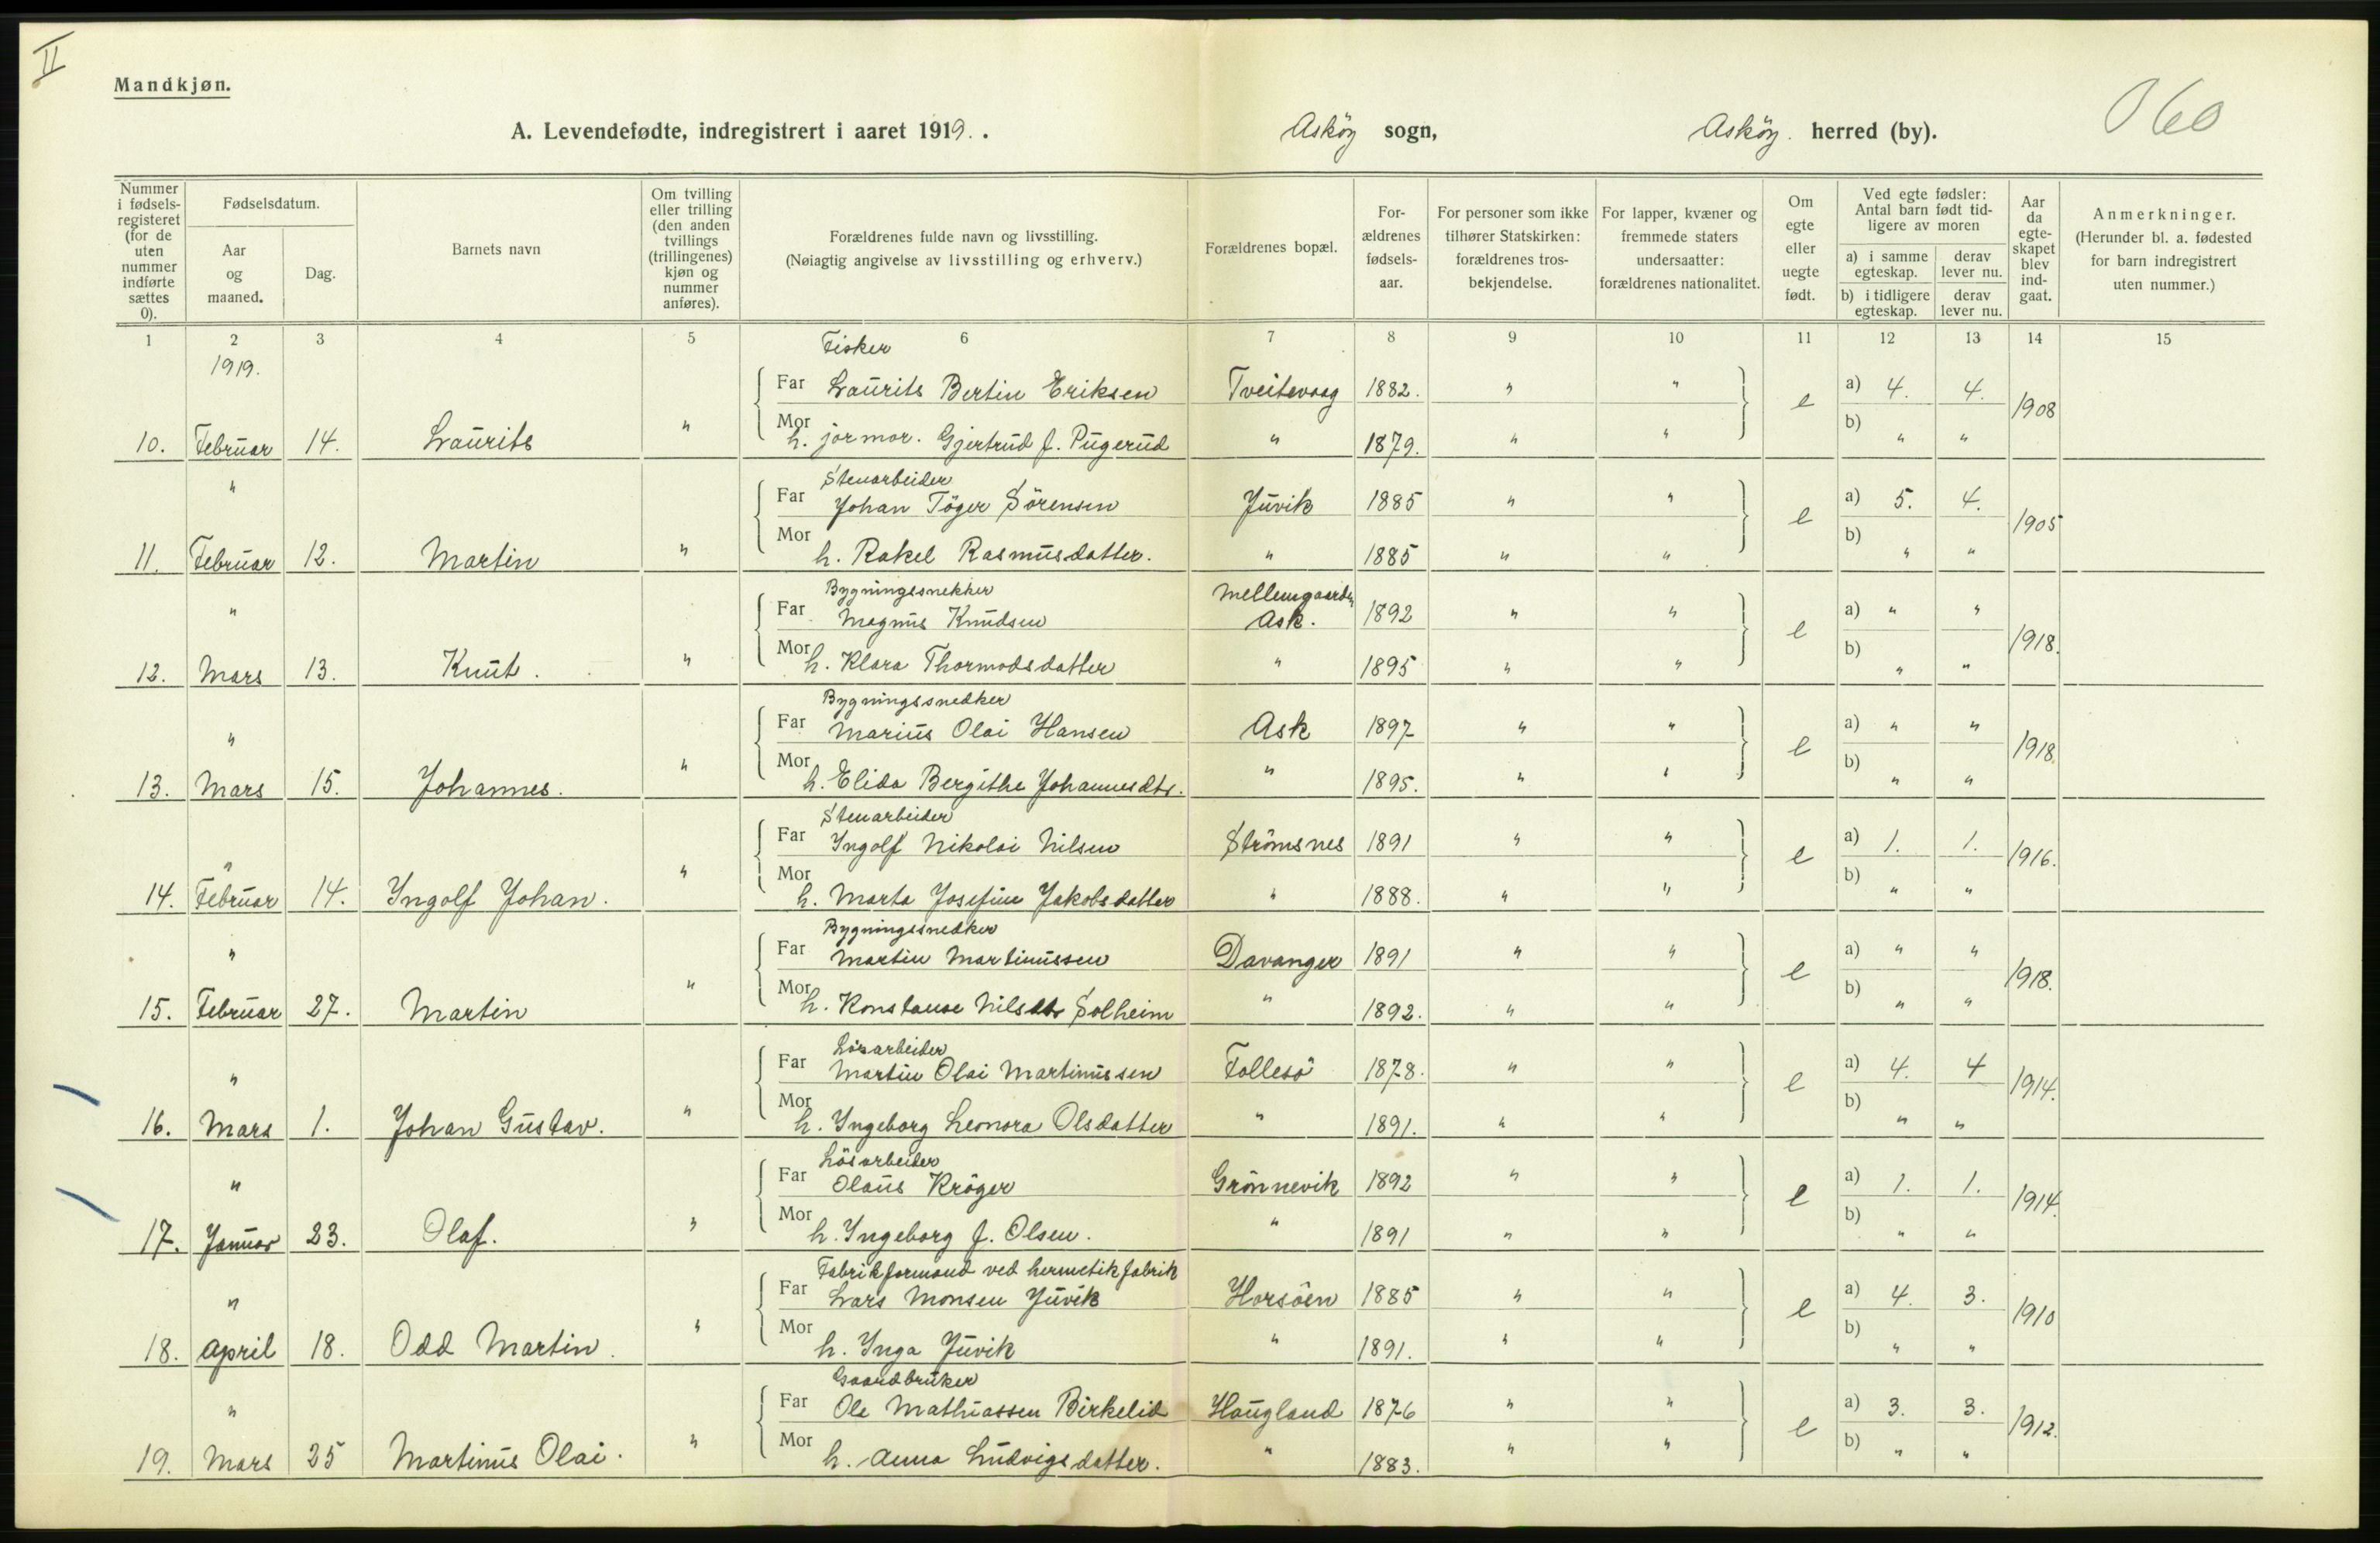 II
Mandkjøn.
A. Levendefødte, indregistrert i aaret 1919. . Asköy sogn, Asköy. herred (by). 060
Nummer i fødsels-registeret (for de uten nummer indførte sættes 0).
Fødselsdatum.
Aar og maaned.
Dag.
Barnets navn
Om tvilling eller trilling (den anden tvillings (trillingenes) kjøn og nummer anføres).
Forældrenes fulde navn og livsstilling.
(Nøiagtig angivelse av livsstilling og erhverv.)
Forældrenes bopæl.
For-ældrenes fødsels-aar.
For personer som ikke tilhører Statskirken: forældrenes tros-bekjendelse.
For lapper, kvæner og fremmede staters undersaatter: forældrenes nationalitet.
Om egte eller uegte født.
Ved egte fødsler: Antal barn født tid-ligere av moren
a) i samme egteskap. derav lever nu.
b) i tidligere egteskap. derav lever nu.
Aar da egte-skapet blev ind-gaat.
Anmerkninger.
(Herunder bl. a. fødested for barn indregistrert uten nummer.)
1 2 3 4 5 6 7 8 9 10 11 12 13 14 15
1919.
Fisker
Far Laurits Bertin Eriksen Tveitevaag 1882. " " e a) 4. 4. 1908
10. Februar 14. Laurits " Mor h. jormor. Gjertrud f. Pugerud " 1879. " " b) " "
"
Stenarbeider
Far Johan Töger Sörensen Juvik 1885 " " e a) 5. 4. 1905
11. Februar 12. Martin " Mor h. Rakel Rasmusdatter. " 1885 " " b) " "
"
Bygningssnekker Mellemgaarden
Far Magnus Knudsen Ask. 1892 " " e a) " " 1918.
12. Mars 13. Knut. " Mor h. Klara Thormodsdatter " 1895 " " b) " "
"
Bygningssnedker
Far Marius Olai Hansen Ask 1897 " " e a) " " 1918.
13. Mars 15. Johannes. " Mor h. Elida Bergithe Johannesdtr. " 1895. " " b) " "
"
Stenarbeider
Far Ingolf Nikolai Nilsen Strömsnes 1891 " " e a) 1. 1. 1916.
14. Februar 14. Ingolf Johan. " Mor h. Marta Josefine Jakobsdatter " 1888. " " b) " "
"
Bygningssnedker
Far Martin Martinussen Davanger 1891 " " e a) " " 1918.
15. Februar 27. Martin " Mor h. Konstanse Nilsdtr Solheim " 1892. " " b) " "
"
Lösarbeider
Far Martin Olai Martinussen Follesö 1878. " " e a) 4. 4 1914.
16. Mars 1. Johan Gustav. " Mor h. Ingeborg Leonora Olsdatter " 1891. " " b) " "
"
Lösarbeider
Far Olaus Kröger Grönnevik 1892 " " e a) 1. 1. 1914.
17. Januar 23. Olaf. " Mor h. Ingeborg f. Olsen. " 1891 " " b) " "
"
Fabrikformand ved hermetikfabrik
Far Lars Monsen Juvik Horsöen 1885 " " e a) 4. 3. 1910
18. April 18. Odd Martin. " Mor h. Inga Juvik " 1891. " " b) " "
"
Gaardbruker
Far Ole Mathiassen Birkelid Haugland 1876 " " e a) 3. 3. 1912.
19. Mars 25 Martinus Olai. " Mor h. Anna Ludvigsdatter. " 1883. " " b) " "